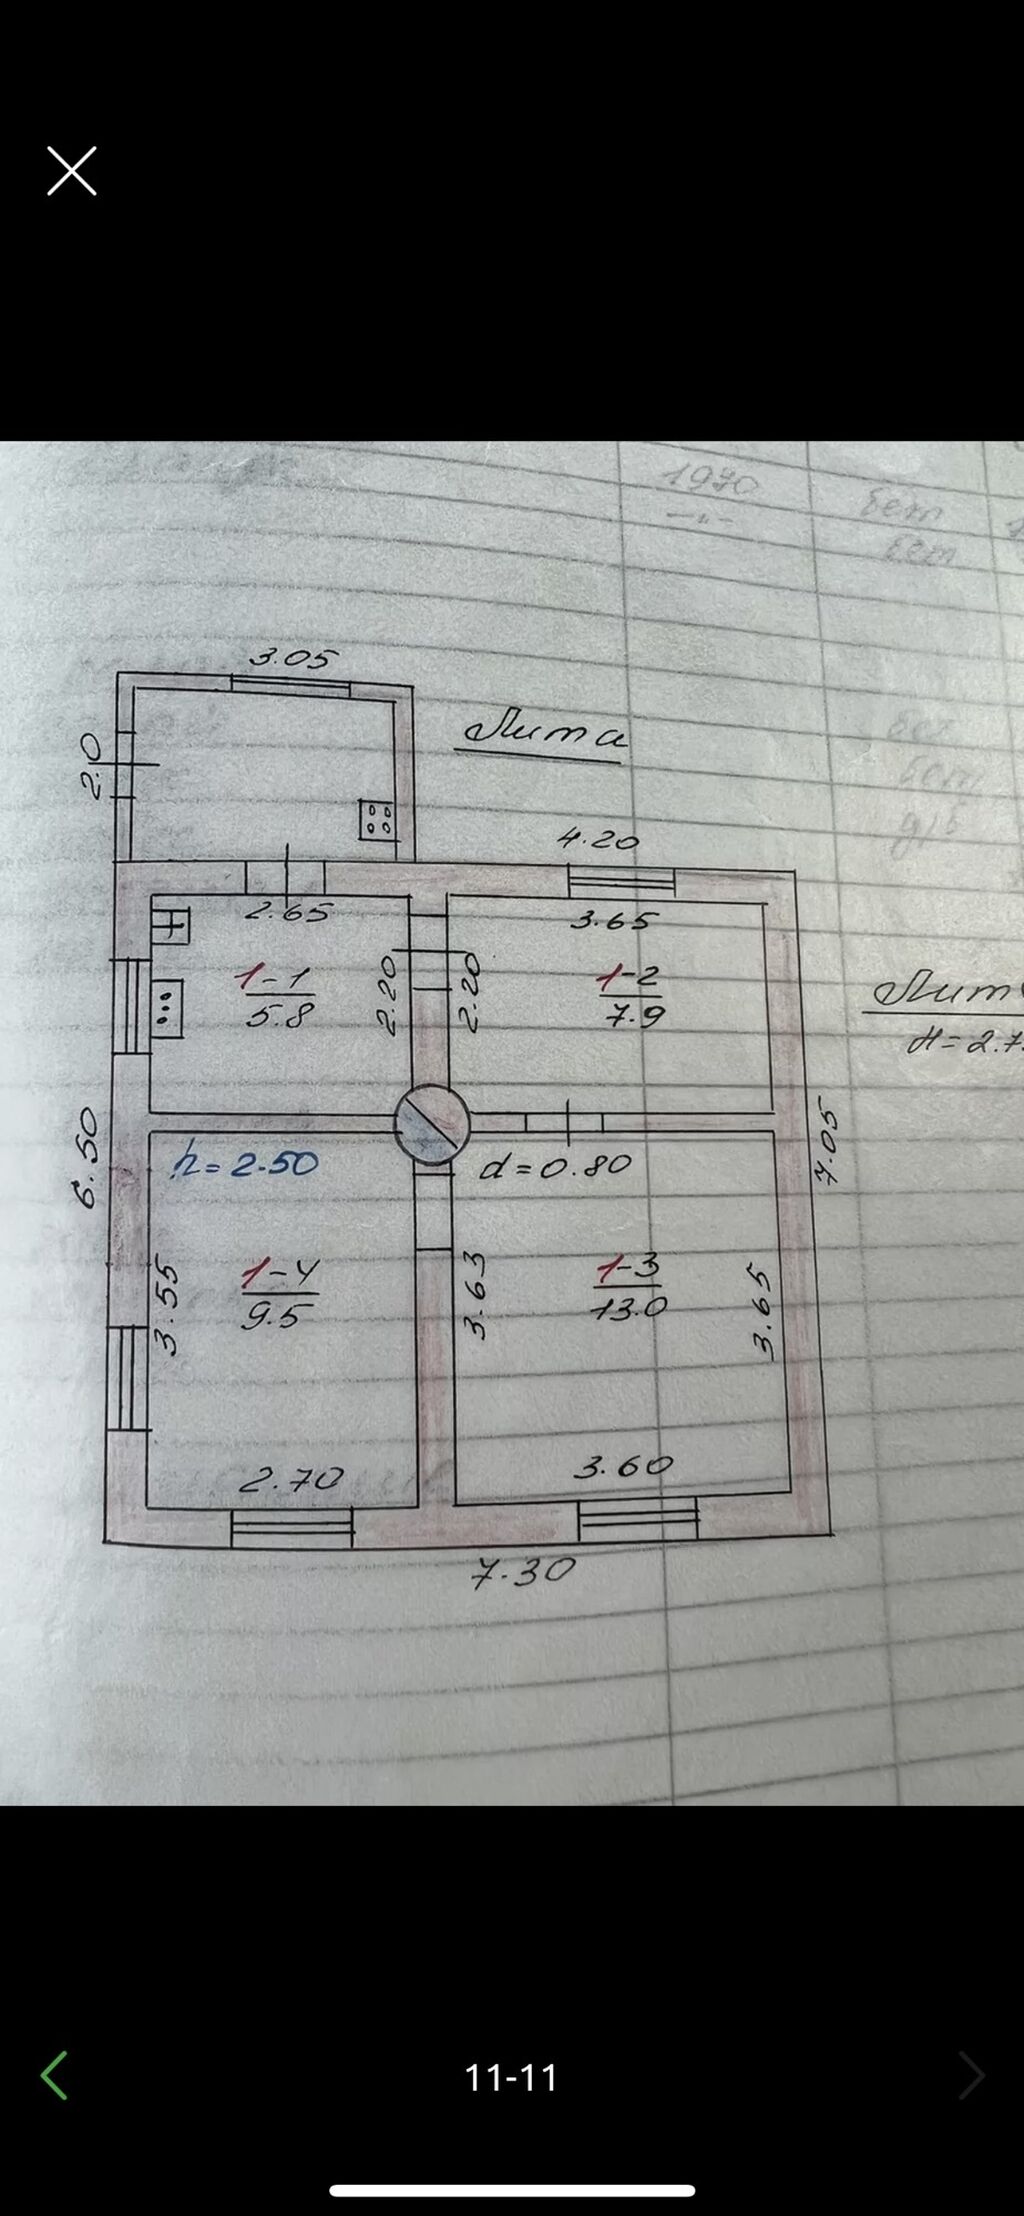 1970
бет
—"—
бет
3.05
Лит а
2.0
4.20
2.65
3.65
1-1
5.8
2.20
2.20
1-2
7.9
Лит
H=2.7
6.50
7.05
h=2.50
d=0.80
3.55
1-4
9.5
3.63
1-3
13.0
3.65
2.70
3.60
7.30
11-11